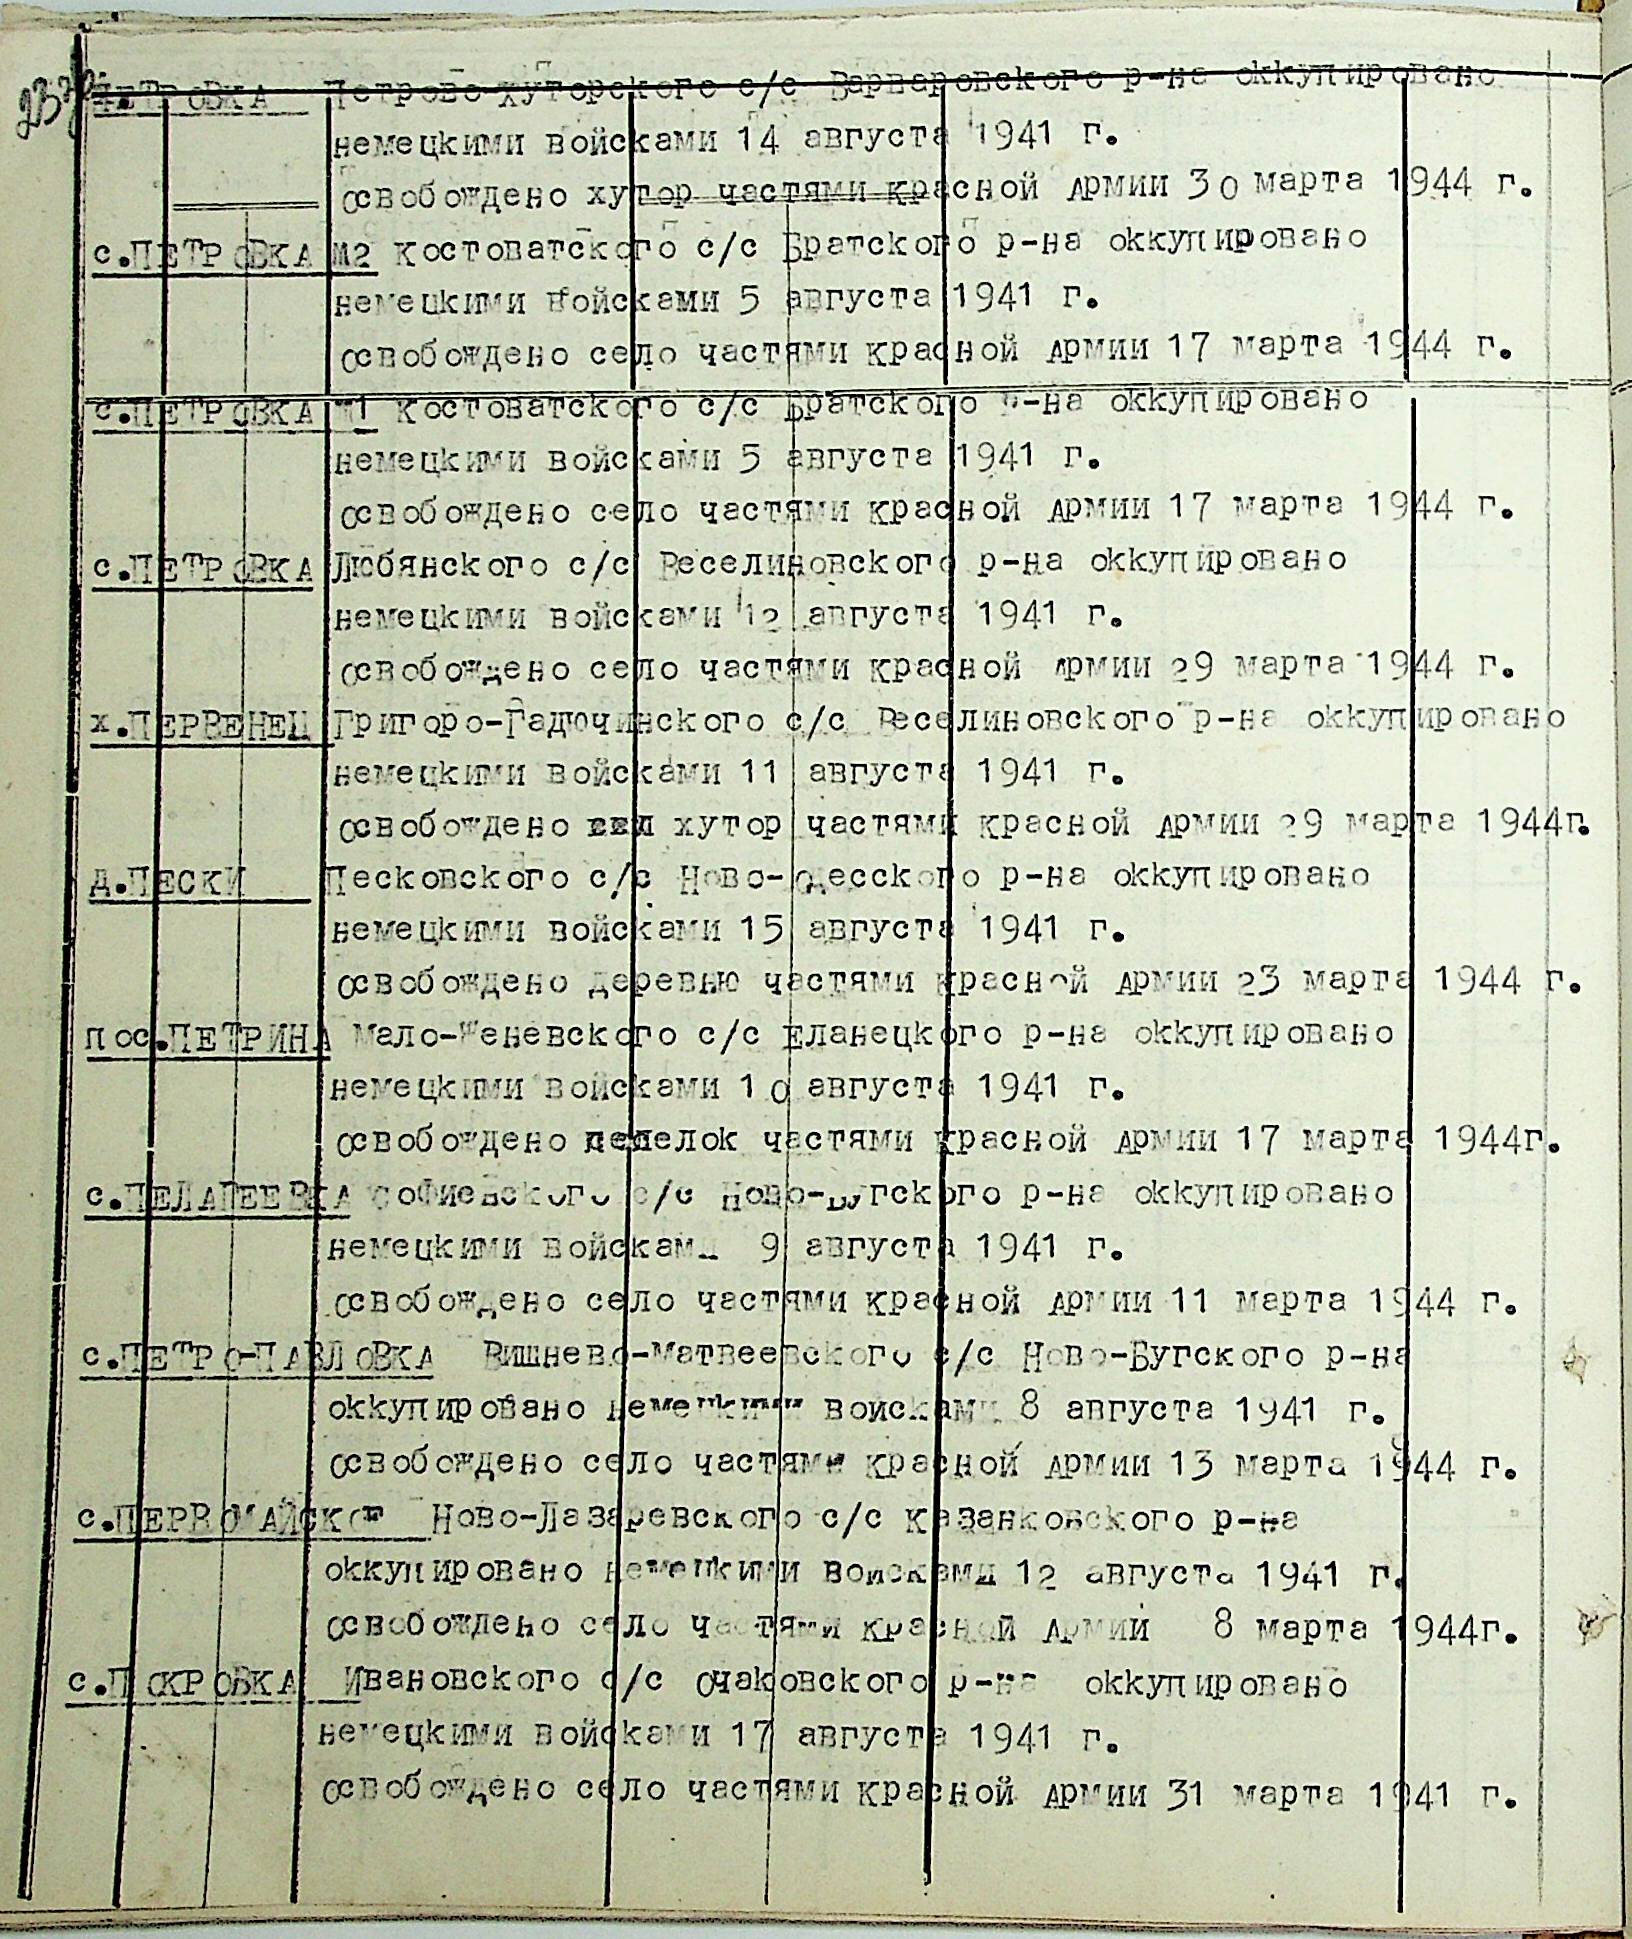 х.ПЕТРОВКА Петрово-хуторского с/с Варваровского р-на оккупировано
немецкими войсками 14 августа 1941 г.
освобождено хутор частями красной Армии 30 марта 1944 г.
с.ПЕТРОВКА №2 Костоватского с/с Братского р-на оккупировано
немецкими войсками 5 августа 1941 г.
освобождено село частями красной Армии 17 марта 1944 г.
с.ПЕТРОВКА №1 Костоватского с/с Братского р-на оккупировано
немецкими войсками 5 августа 1941 г.
освобождено село частями красной Армии 17 марта 1944 г.
с.ПЕТРОВКА Любянского с/с Веселиновского р-на оккупировано
немецкими войсками 12 августа 1941 г.
освобождено село частями красной Армии 29 марта 1944 г.
х.ПЕРВЕНЕЦ Григоро-Гадючинского с/с Веселиновского р-на оккупировано
немецкими войсками 11 августа 1941 г.
освобождено хутор частями красной Армии 29 марта 1944г.
д.ПЕСКИ Песковского с/с Ново-Одесского р-на оккупировано
немецкими войсками 15 августа 1941 г.
освобождено деревню частями красной Армии 23 марта 1944 г.
пос.ПЕТРИНА с/с Еланецкого р-на оккупировано
немецкими войсками 10 августа 1941 г.
освобождено частями красной Армии 17 марта 1944г.
с.ПЕЛАГЕЕВКА Софиевского с/с Ново-Бугского р-на оккупировано
немецкими войсками 9 августа 1941 г.
освобождено село частями красной Армии 11 марта 1944 г.
с.ПЕТРО-ПАВЛОВКА Вишнево-Матвеевского с/с Ново-Бугского р-на
оккупировано немецкими войсками 8 августа 1941 г.
освобождено село частями красной Армии 13 марта 1944 г.
с.ПЕРВОМАЙСКОЕ Ново-Лазаревского с/с Казанковского р-на
оккупировано немецкими войсками 12 августа 1941 г.
освобождено село частями красной Армии 8 марта 1944г.
с.ПОКРОВКА Ивановского с/с Очаковского р-на оккупировано
немецкими войсками 17 августа 1941 г.
освобождено село частями красной Армии 31 марта 1941 г.